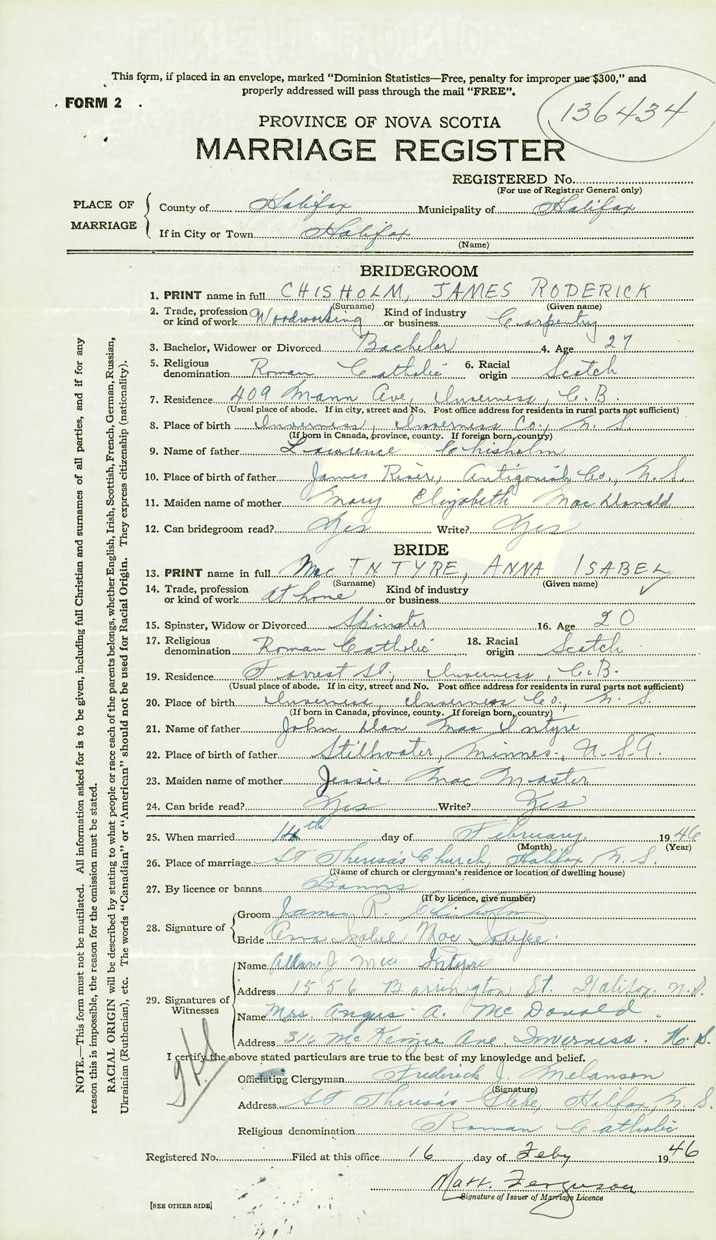 This form, if placed in an envelope, marked "Dominion Statistics—Free, penalty for improper use $300," and
properly addressed will pass through the mail "FREE".
FORM 2
136434
PROVINCE OF NOVA SCOTIA
MARRIAGE REGISTER
REGISTERED No.
(For use of Registrar General only)
PLACE OF MARRIAGE
County of Halifax Municipality of Halifax
If in City or Town Halifax
(Name)
BRIDEGROOM
1. PRINT name in full CHISHOLM, JAMES RODERICK
(Surname) (Given name)
2. Trade, profession or kind of work Woodworking Kind of industry or business Carpentry
3. Bachelor, Widower or Divorced Bachelor 4. Age 27
5. Religious denomination Roman Catholic 6. Racial origin Scotch
7. Residence 409 Mann Ave, Inverness, C.B.
(Usual place of abode. If in city, street and No. Post office address for residents in rural parts not sufficient)
8. Place of birth Inverness, Inverness Co., N.S.
(If born in Canada, province, county. If foreign born, country)
9. Name of father Lawrence Chisholm
10. Place of birth of father James River, Antigonish Co., N.S.
11. Maiden name of mother Mary Elizabeth MacDonald
12. Can bridegroom read? Yes Write? Yes
BRIDE
13. PRINT name in full MacINTYRE, ANNA ISABEL
(Surname) (Given name)
14. Trade, profession or kind of work at home Kind of industry or business
15. Spinster, Widow or Divorced Spinster 16. Age 20
17. Religious denomination Roman Catholic 18. Racial origin Scotch
19. Residence Forrest St., Inverness, C.B.
(Usual place of abode. If in city, street and No. Post office address for residents in rural parts not sufficient)
20. Place of birth Inverness Inverness Co., N.S.
(If born in Canada, province, county. If foreign born, country)
21. Name of father John Dan MacIntyre
22. Place of birth of father Stillwater, Minnes., U.S.A.
23. Maiden name of mother Jessie MacMaster
24. Can bride read? Yes Write? Yes
25. When married 14th day of February 1946
(Month) (Year)
26. Place of marriage St Theresa's Church, Halifax, N.S.
(Name of church or clergyman's residence or location of dwelling house)
27. By licence or banns Banns
(If by licence, give number)
28. Signature of
Groom James R. Chisholm
Bride Anna Isabel MacIntyre
29. Signatures of Witnesses
Name Allan J MacIntyre
Address 1556 Barrington St. Halifax. N.S.
Name Mrs. Angus A. McDonald
Address 316 McKenzie Ave, Inverness. N.S.
I certify the above stated particulars are true to the best of my knowledge and belief.
Officiating Clergyman Frederick J. Melanson
(Signature)
Address St Theresa's Glebe, Halifax, N.S.
Religious denomination Roman Catholic
Registered No. Filed at this office 16 day of Feby 1946
Matt. Ferguson
Signature of Issuer of Marriage Licence
[SEE OTHER SIDE]
NOTE.—This form must not be mutilated. All information asked for is to be given, including full Christian and surnames of all parties, and if for any
reason this is impossible, the reason for the omission must be stated.
RACIAL ORIGIN will be described by stating to what people or race each of the parents belongs, whether English, Irish, Scottish, French, German, Russian,
Ukrainian (Ruthenian), etc. The words "Canadian" or "American" should not be used for Racial Origin. They express citizenship (nationality).